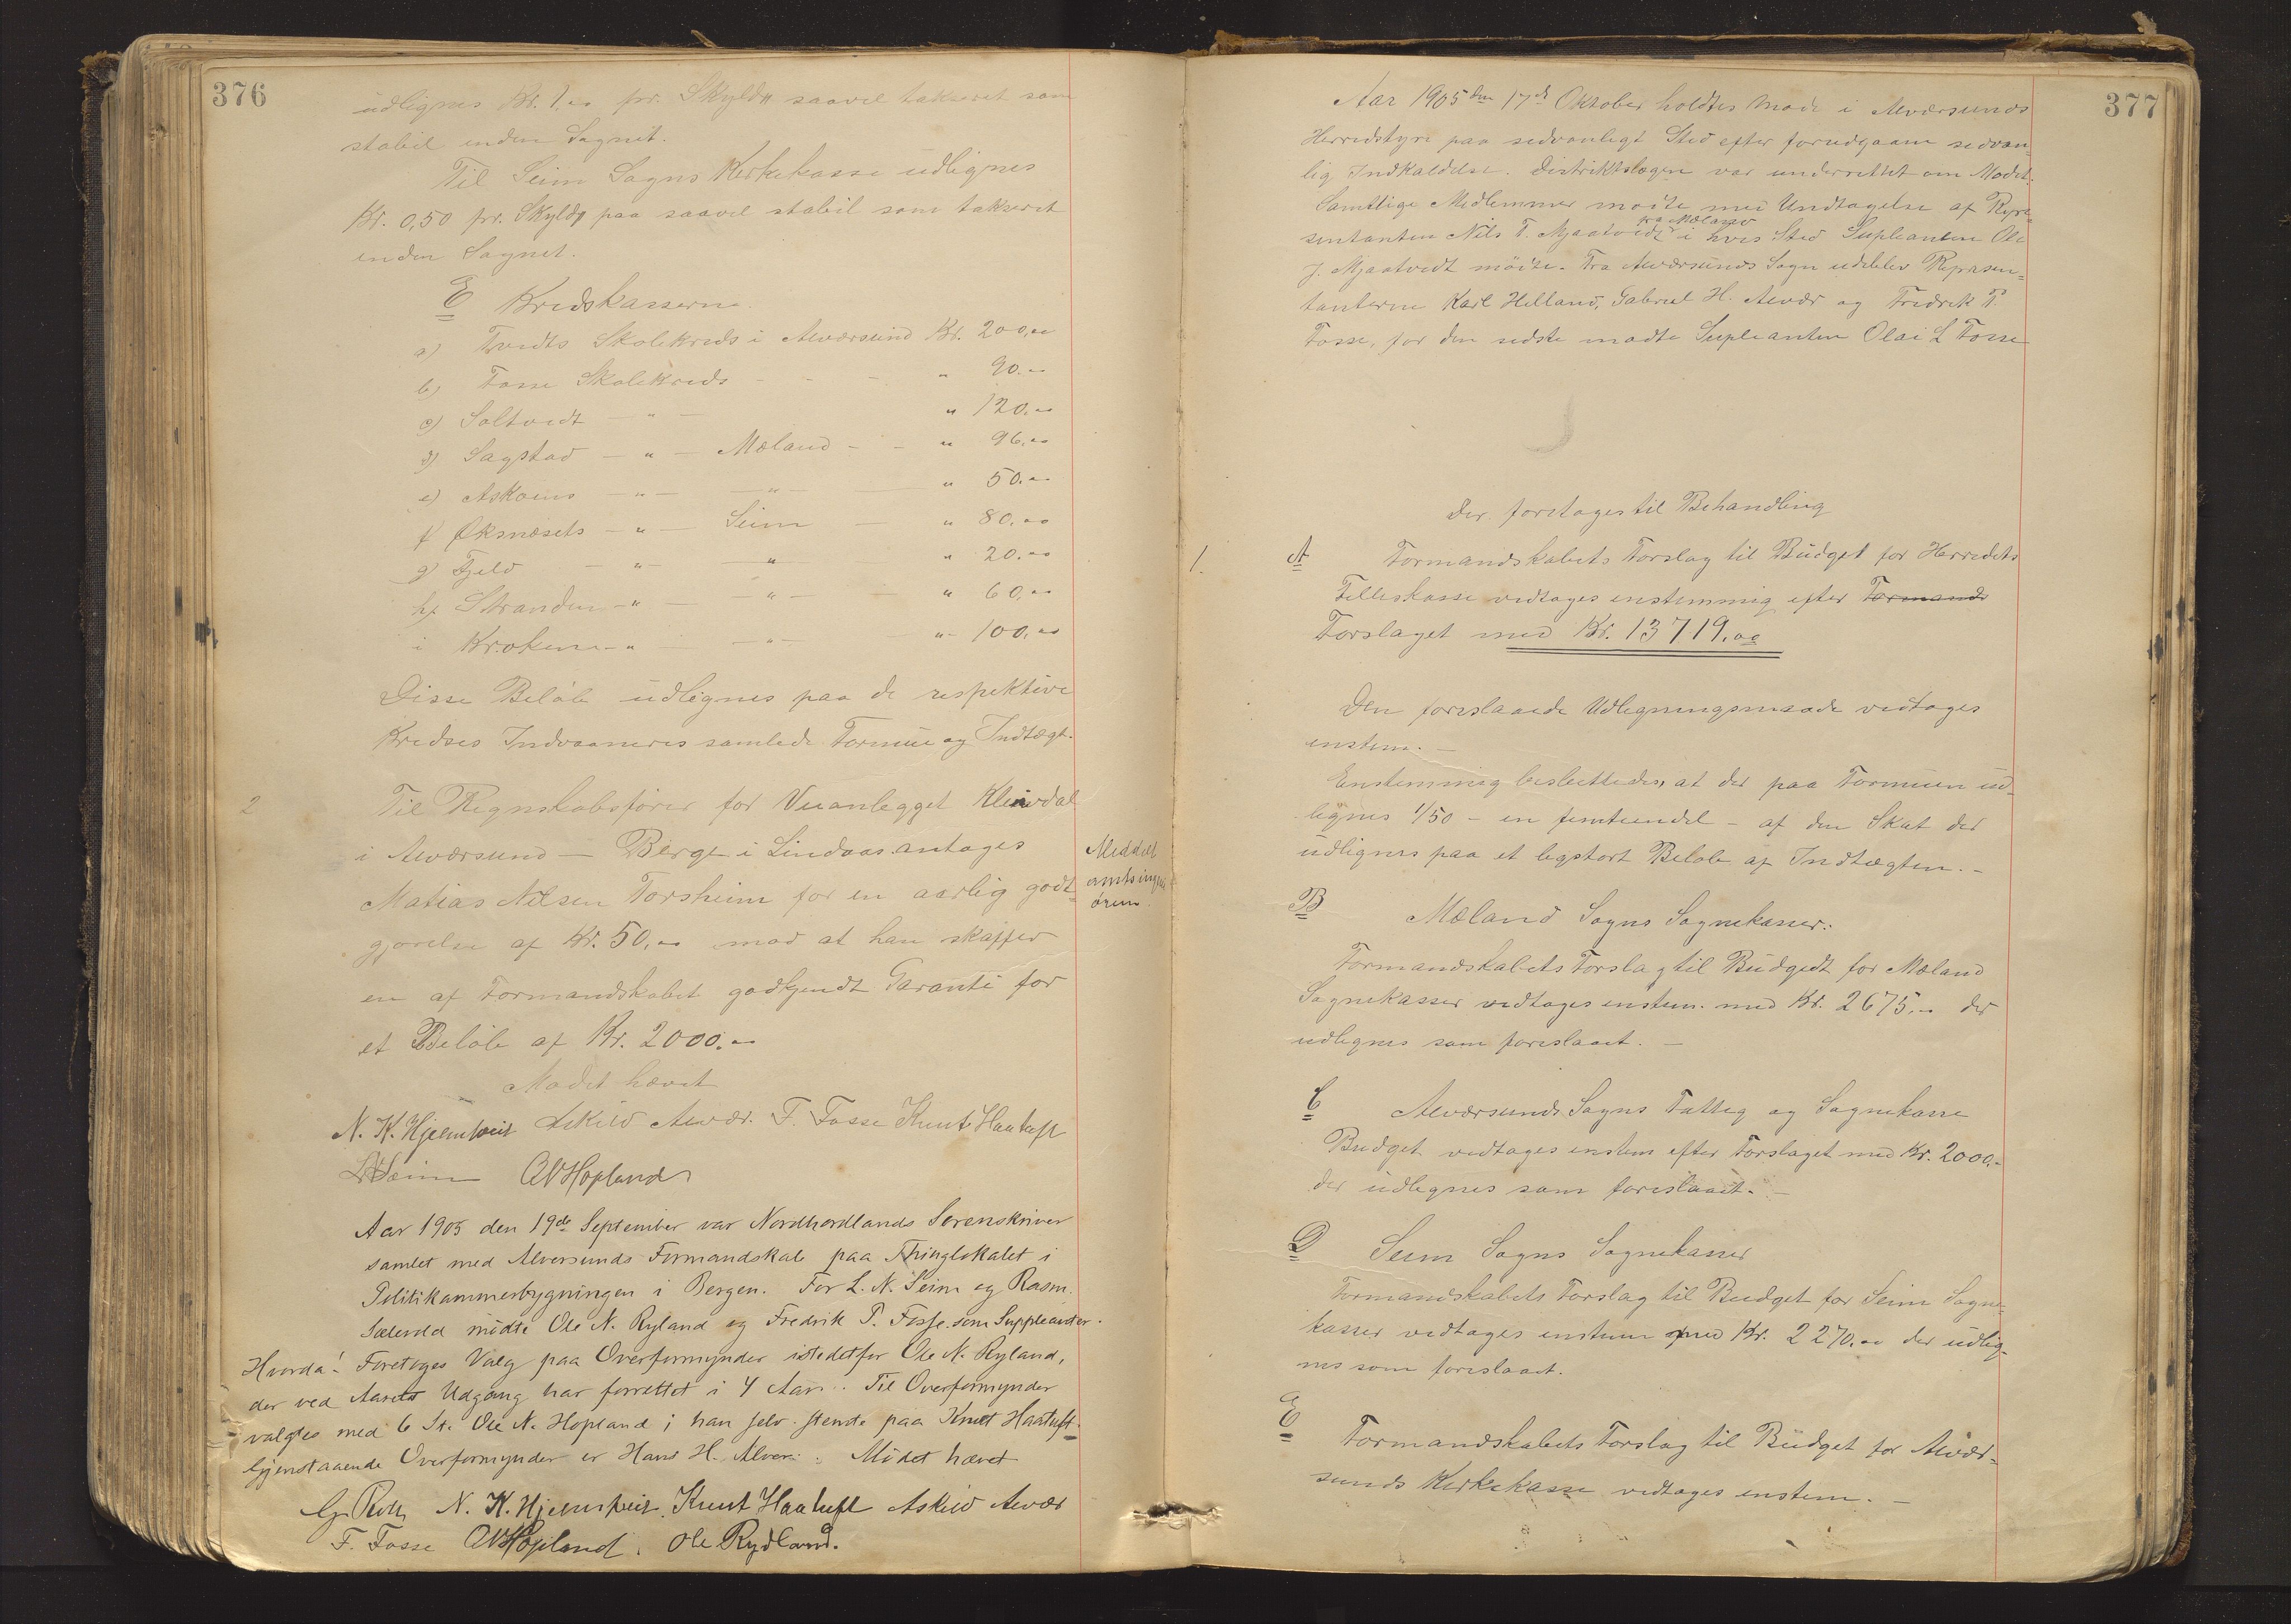 376
udlignes Kr. 1,00 pr. Skyldm saavel takseret som
stabil inden Sagnet.
Til Seim Sogns Kirkekasse udlignes
Kr. 0,50 pr. Skyldm paa saavel stabil som takseret
inden Sognet.
E Kredskasserne.
a) Tvedts Skolekreds i Alværsund Kr. 200,00
b) Fosse Skolekreds - - - " 90.-
c) Soltvedt - " - " 120.00
d) Sagstad - " - Mæland - - " 96,00
e) Askvins - " - - " - " 50.00
f Øksnæsets - " - Seim - " 80,00
g) Fjeld - " - " " 20.00
h) Stranden - " - - " - - " 60,00
i Kroken - " - - " - " 100,00
Disse Beløb udlignes paa de respektive
Kredses Indvaaneres samlede Formue og Indtægt.
2 Til Regnskabsfører for Veianlegget Kleivdal
i Alværsund - Berge i Lindaas antages
Matias Nilsen Torsheim for en aarlig godt-
gjørelse af Kr. 50,00 mod at han skaffer
en af Formandskabet godkjendt Garanti for
et Beløb af Kr. 2000.00
Meddelt
amtsingeni
øren.
Mødet hævet
N. K. Hjelmtveit Askild Alvær. F. Fosse Knut Haatuft
LNSeim ONHopland
Aar 1905 den 19de September var Nordhordlands Sorenskriver
samlet med Alversunds Formandskab paa Thinglokalet i
Politikammerbygningen i Bergen. For L. N. Seim og Rasm.
Sælevold mödte Ole N. Ryland og Fredrik P. Fosse som Suppleanter.
Hvorda! Foretoges Valg paa Overformynder istedetfor Ole N. Ryland,
der ved Aarets Udgang har forrettet i 4 Aar. Til Overformynder
valgtes med 6 St. Ole N. Hopland; han selv stemte paa Knut Haatuft.
Gjenstaaende Overformynder er Hans H. Alver. Mödet hævet
N. K. Hjelmtveit. Knut Haatuft Askild Alvær
F. Fosse ONHopland. Ole Rydland.
377
Aar 1905 den 17de Oktober holdtes Møde i Alværsunds
Herredstyre paa sedvanligt Sted efter forudgaaen sedvan-
lig Indkaldelse. Distriktslægen var underrettet om Mødet.
Samtlige Medlemmer mødte med Undtagelse af Repre-
fra Mæland
sentanten Nils T. Mjaatvedt i hvis Sted Supleanten Ole
J. Mjaatvedt mödte. Fra Alværsunds Sogn udeblev Repræsen-
tanterne Karl Helland, Gabriel H. Alvær og Fredrik P.
Fosse, for den sidste mødte Supleanten Olai L Fosse
Der foretoges til Behandling
1. A Formandskabets Forslag til Budget for Herredets
Felleskasse vedtages enstemmig efter Formands
Forslaget med Kr. 13719,00
Den foreslaaede Udligningsmaade vedtages
enstem. -
Enstemmig besluttedes, at der paa Formuen ud-
lignes 1/50 - en femtiendel - af den Skat der
udlignes paa et ligstort Beløb af Indtægten. -
B Mæland Sogns Sognekasser.
Formandskabets Forslag til Budgedt for Mæland
Sognekasser vedtages enstem. med Kr. 2675,- der
udlignes som foreslaaet. -
C Alværsunds Sogns Fattig og Sognekasse
Budget vedtages enstem efter Forslaget med Kr. 2000,-
der udlignes som foreslaaet. -
D Seim Sogns Sognekasser
Formandskabets Forslag til Budget for Seim Sogne-
kasser vedtages enstem med Kr. 2270.00 der udlig-
nes som foreslaaet.
E Formandskabets Forslag til Budget for Alvær-
sunds Kirkekasse vedtages enstem. -